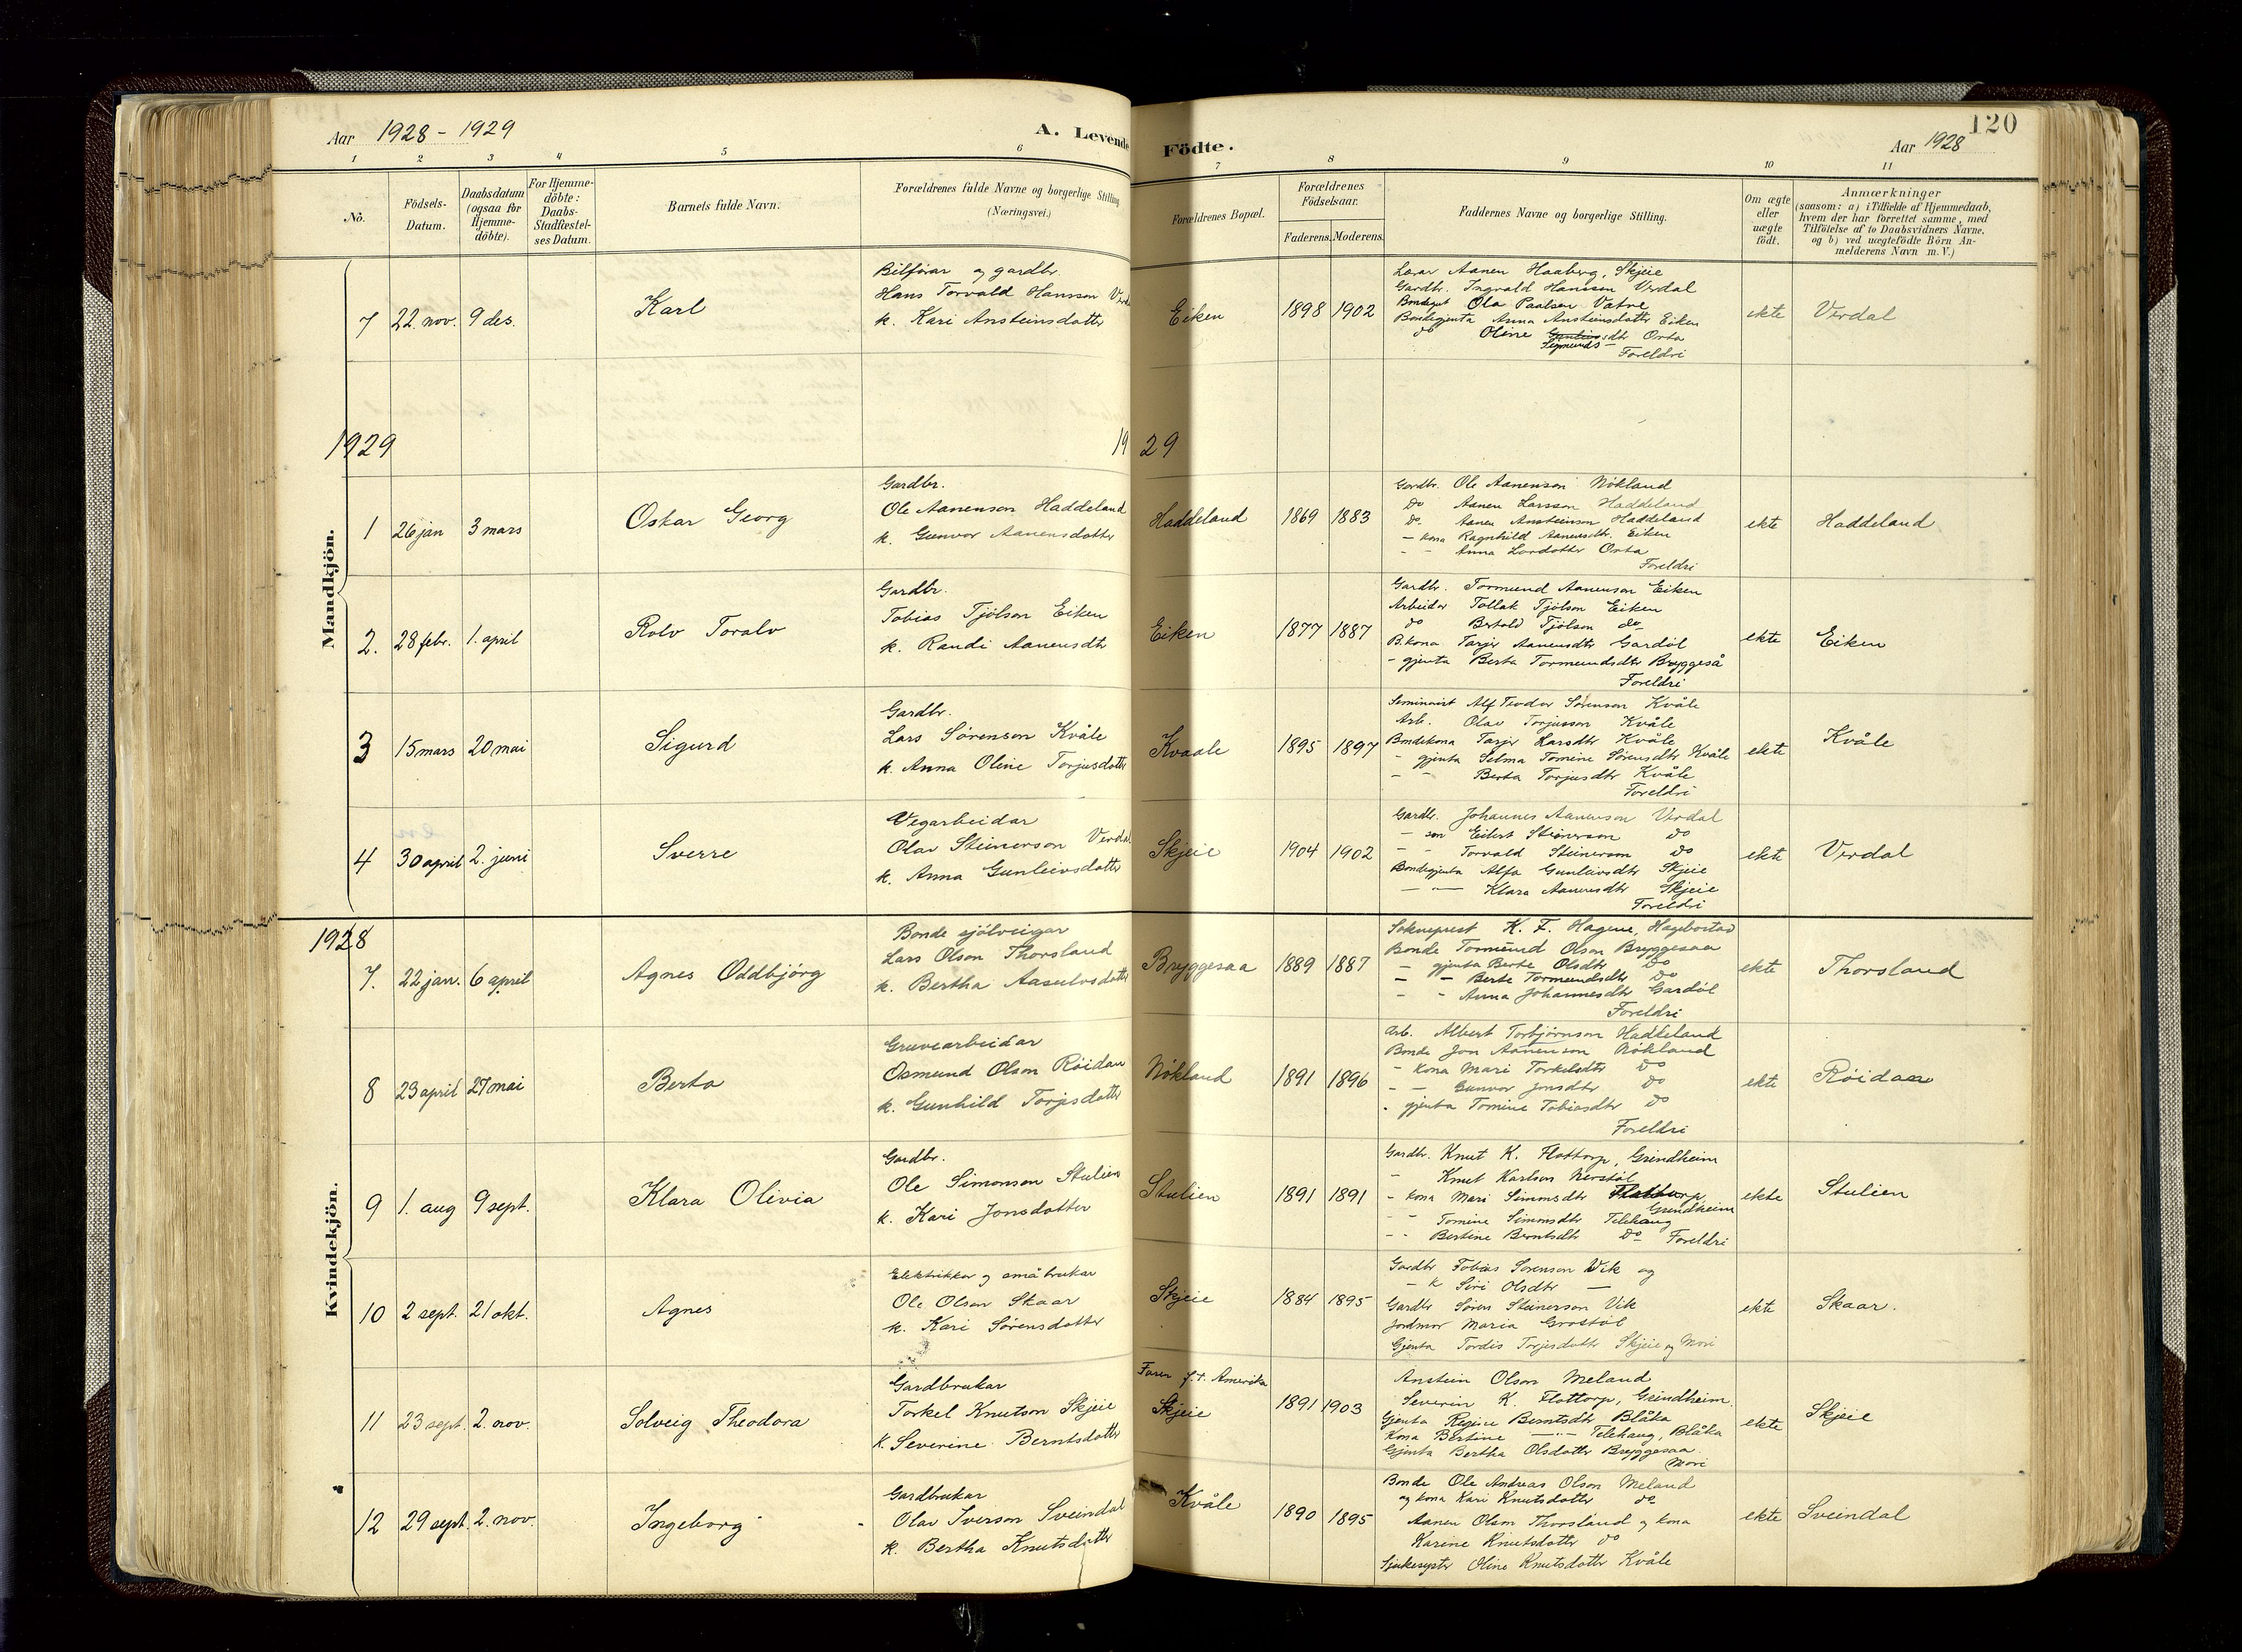 120
Aar 1928 - 1929
A. Levende Födte.
Aar 1928
1 2 3 4 5 6 7 8 9 10 11
No.
Födsels-
Datum.
Daabsdatum
(ogsaa for
Hjemme-
döbte).
For Hjemme-
döbte:
Daabs-
Stadfæstel-
ses Datum.
Barnets fulde Navn.
Forældrenes fulde Navne og borgerlige Stilling
(Næringsvei.)
Forældrenes Bopæl.
Forældrenes
Födselsaar.
Faderens. Moderens.
Faddernes Navne og borgerlige Stilling.
Om ægte
eller
uægte
födt.
Anmærkninger
(saasom: a) i Tilfælde af Hjemmedaab,
hvem der har forrettet samme, med
Tilföielse af to Daabsvidners Navne,
og b) ved uægtefödte Börn An-
melderens Navn m. V.)
Mandkjön.
7 22. nov. 9 des. Karl
Bilförar og gardbr.
Hans Torvald Hansson
k. Kari Ansteinsdotter
Eiken 1898 1902
Lærar Aanen Haaberg, Skjeie
Gardbr. Ingvald Hanssen Verdal
Bondegut Ola Paalsen Vatne
Bondegjenta Anna Ansteinsdotter Eiken
do Oline sdtr Osta
Segmunds -
Foreldri
ekte Verdal
1929 1929
1 26 jan 3 mars Oskar Georg
Gardbr.
Ole Aanenson Haddeland
k. Gunvor Aanensdotter
Haddeland 1869 1883
Gardbr. Ole Aanenson Nökland
do Aanen Larsson Haddeland
do. Aanen Ansteinson Haddeland
- kona Ragnhild Aanensdtr. Eiken
- - Anna Lordotter Osta
Foreldri
ekte Haddeland
2. 28 febr. 1. april Rolv Toralv
Gardbr.
Tobias Tjölson Eiken
k. Randi Aanensdtr
Eiken 1877 1887
Gardbr. Tormund Aanenson Eiken
Arbeidar Tollak Tjölson Eiken
do Bertold Tjölson do
B.kona Tarjer Aanensdtr Gardöl
- gjenta Berta Tormundsdtr Bryggeså
Foreldri
ekte Eiken
3 15 mars 20 mai Sigurd
Gardbr.
Lars Sörenson Kvåle
k. Anna Oline Torjusdotter
Kvaale 1895 1897
Seminarist Alf Teodor Sörenson Kvåle
Arb. Olav Torjusson Kvåle
Bondekona Tarjer Larsdtr Kvåle
- gjenta Selma Tomine Sörensdtr Kvåle
- - Berta Torjusdtr Kvåle
Foreldri
ekte Kvåle
4 30 april 2. juni Sverre
Vegarbeidar
Olav Steinerson Verdal
k. Anna Gunleivsdotter
Skjeie 1904 1902
Gardbr. Johannes Aanenson Verdal
- son Eilert Steinerson do
- - Torvald Steinerson do
Bondegjenta Alfa Gunleivsdtr Skjeie
- - Klara Aanensdtr Skjeie
Foreldri
ekte Verdal
1928
Kvindekjön.
7. 22 jan. 6 april Agnes Oddbjörg
Bonde sjölveigar
Lars Olson Thorsland
k. Bertha Aasulvsdotter
Bryggesaa 1889 1887
Sokneprest K. F. Hagene, Hægebostad
Bonde Tormund Olson Bryggesaa
- gjenta Berte Olsdtr do
- - Berte Tormundsdtr do
- - Anna Johannesdtr Gardöl
Foreldri
ekte Thorsland
8 23 april 27 mai Berta
Gruvearbeidar
Osmund Olson Röidan
k. Gunhild Torjesdotter
Nökland 1891 1896
Arb. Albert Torbjörnson Haddeland
Bonde Jon Aanenson Nökland
- kona Mari Torkelsdtr do
- - Gunvor Jonsdtr do
- gjenta Tomine Tobiasdtr do
Foreldri
ekte Röidan
9 1. aug 9 sept. Klara Olivia
Gardbr.
Ole Simonson Stulien
k. Kari Jonsdotter
Stulien 1891 1891
Gardbr. Knut K. Flottorp, Grindheim
- Knut Karlson Nerstöl
- kona Mari Simonsdtr Flottorp,
Grindheim
- - Tomine Simonsdtr Telehaug
- - Bertine Berntsdtr do Foreldri
ekte Stulien
10 2 sept. 21 okt. Agnes
Elektrikkar og småbrukar
Ole Olson Skaar
k. Kari Sörensdotter
Skjeie 1884 1895
Gardbr Tobias Sorenson Vik og
- k Siri Olsdtr -
Gardbr Sören Steinerson Vik
Jordmor Maria Grostöl
Gjenta Tordis Torjesdotter Skjeie og Mori
ekte Skaar.
11 23 sept. 2. nov. Solveig Theodora
Gardbrukar
Torkel Knutson Skjeie
k. Severine Berntsdotter
Faren f.t. Amerika
Skjeie 1891 1903
Anstein Olson Meland
Severin K. Flottorp, Grindheim.
Gjenta Regine Berntsdtr Blåka
Kona Bertine -"- Telehaug, Blåka
Gjenta Bertha Olsdotter Bryggesaa.
Mori
ekte Skjeie
12 29 sept. 2. nov. Ingeborg
Gardbrukar
Olav Iverson Sveindal
k. Bertha Knutsdotter
Kvåle 1890 1895
Bonde Ole Andreas Olson Meland
og kona Kari Knutsdotter do
Aanen Olson Thorsland og kona
Karine Knutsdotter do
Sjukesyster Oline Knutsdotter Kvåle
ekte Sveindal